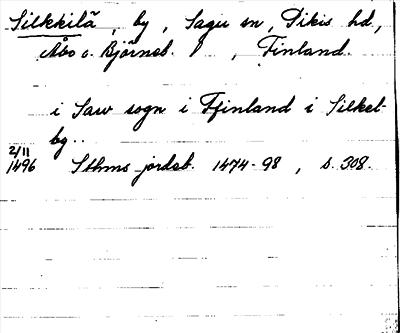 Silkkilä, by, Sagu sn, Pikis hd.,
Åbo o. Björneb. l, Finland.
i Saw sogn i Ffinland i Silkel-
by..
2/11
1496 Sthms jordeb. 1474-98, s. 308.